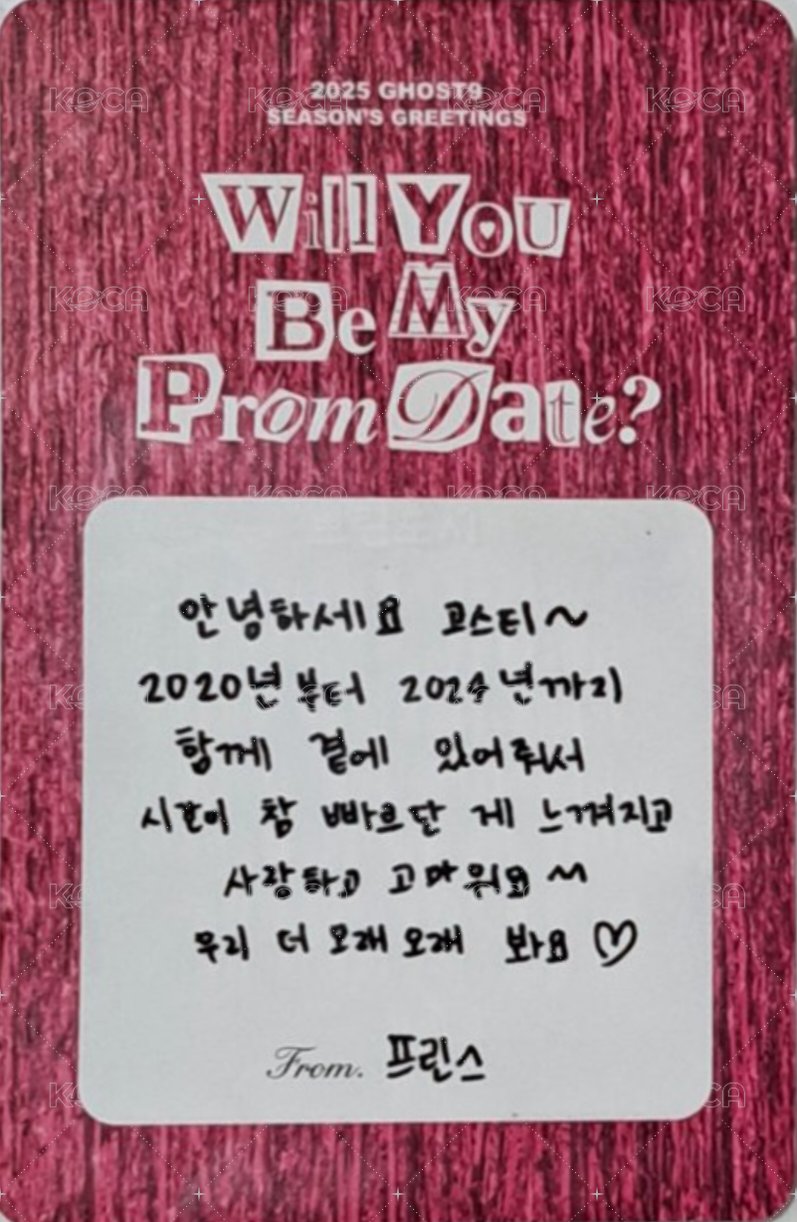 2025 GHOST9
SEASON'S GREETINGS
Will You
Be My
Prom Date?
안녕하세요 고스티~
2020년부터 2024년까지
함께 곁에 있어줘서
시간이 참 빠르단 게 느껴지고
사랑하고 고마워요 ~
우리 더 오래 오래 봐요 ♡
From. 프린스
KOCA